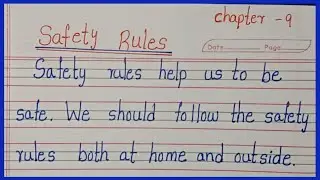 chapter - 9
Safety Rules
Date Page
Safety rules help us to be
safe. We should follow the safety
rules both at home and outside.